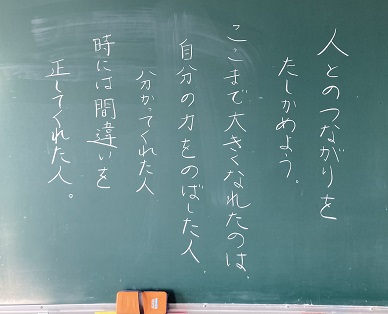 人とのつながりを
たしかめよう。
ここまで大きくなれたのは、
自分の力をのばした人、
分かってくれた人
時には間違いを
正してくれた人。